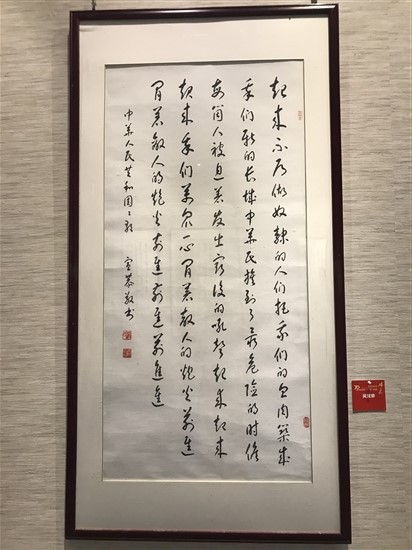 起来不愿做奴隸的人们把我们的血肉築成
我们新的长城中华民族到了最危险的时候
每箇人被迫着发出最後的吼声起来起来
起来我们万众一心冒着敌人的炮火前进
冒着敌人的炮火前进前进前进进
中华人民共和国々歌
70